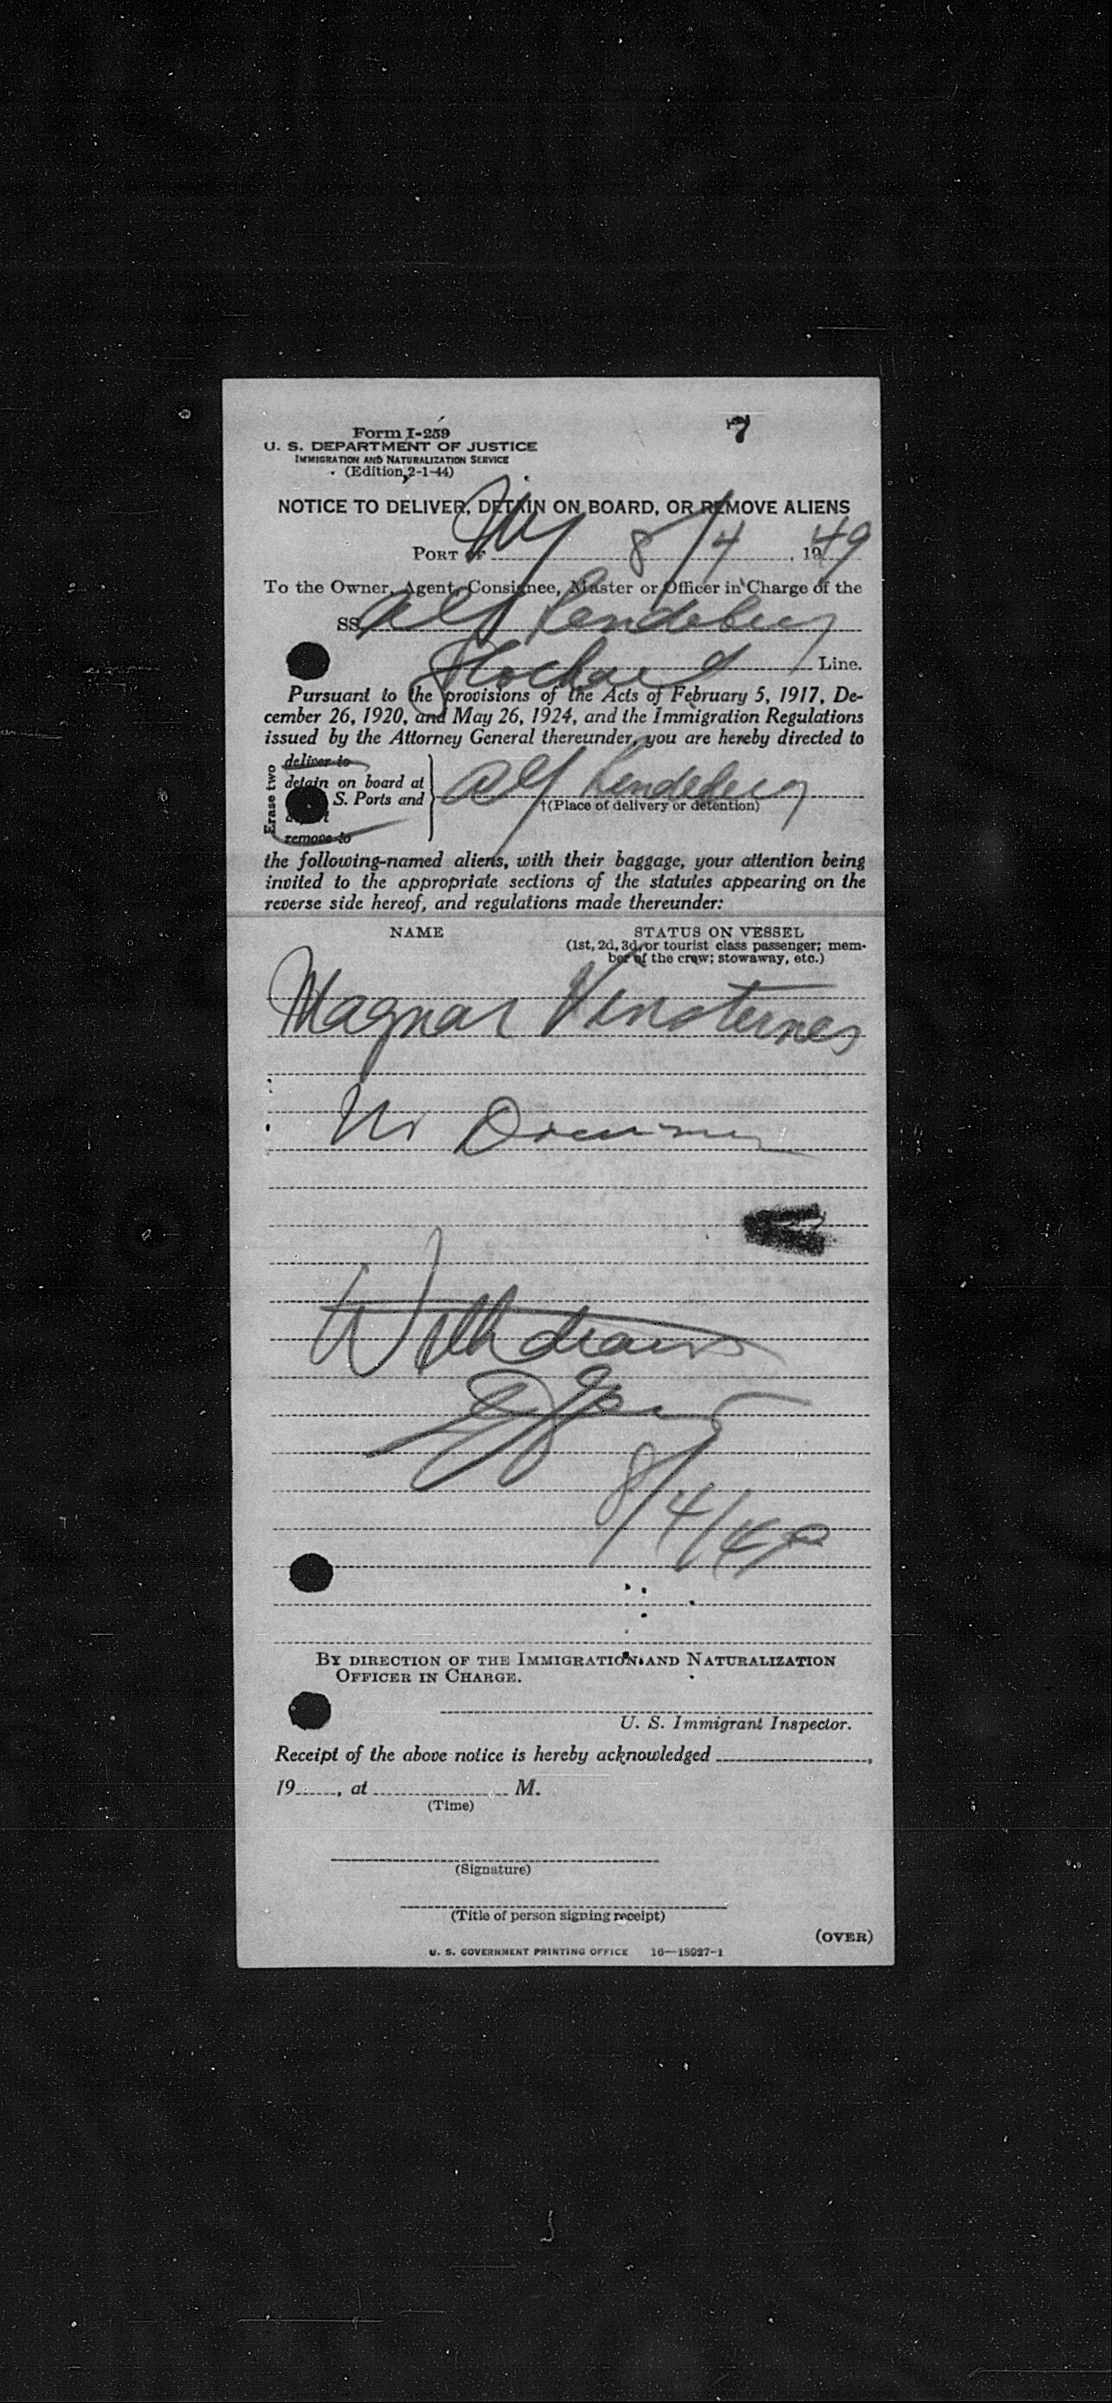 7
Form I-259
U. S. DEPARTMENT OF JUSTICE
IMMIGRATION AND NATURALIZATION SERVICE
(Edition 2-1-44)
NOTICE TO DELIVER, DETAIN ON BOARD, OR REMOVE ALIENS
PORT OF NY 8/4, 1949
To the Owner, Agent, Consignee, Master or Officer in Charge of the
SS Alf
Line.
Pursuant to the provisions of the Acts of February 5, 1917, De-
cember 26, 1920, and May 26, 1924, and the Immigration Regulations
issued by the Attorney General thereunder, you are hereby directed to
Erase two
deliver to
detain on board at
S. Ports and
remove to
Alf
†(Place of delivery or detention)
the following-named aliens, with their baggage, your attention being
invited to the appropriate sections of the statutes appearing on the
reverse side hereof, and regulations made thereunder:
NAME STATUS ON VESSEL
(1st, 2d, 3d, or tourist class passenger; mem-
ber of the crew; stowaway, etc.)
Magnar
Withdrawn
8/4/49
BY DIRECTION OF THE IMMIGRATION AND NATURALIZATION
OFFICER IN CHARGE.
U. S. Immigrant Inspector.
Receipt of the above notice is hereby acknowledged ,
19 , at M.
(Time)
(Signature)
(Title of person signing receipt)
(OVER)
U. S. GOVERNMENT PRINTING OFFICE 16—18927-1